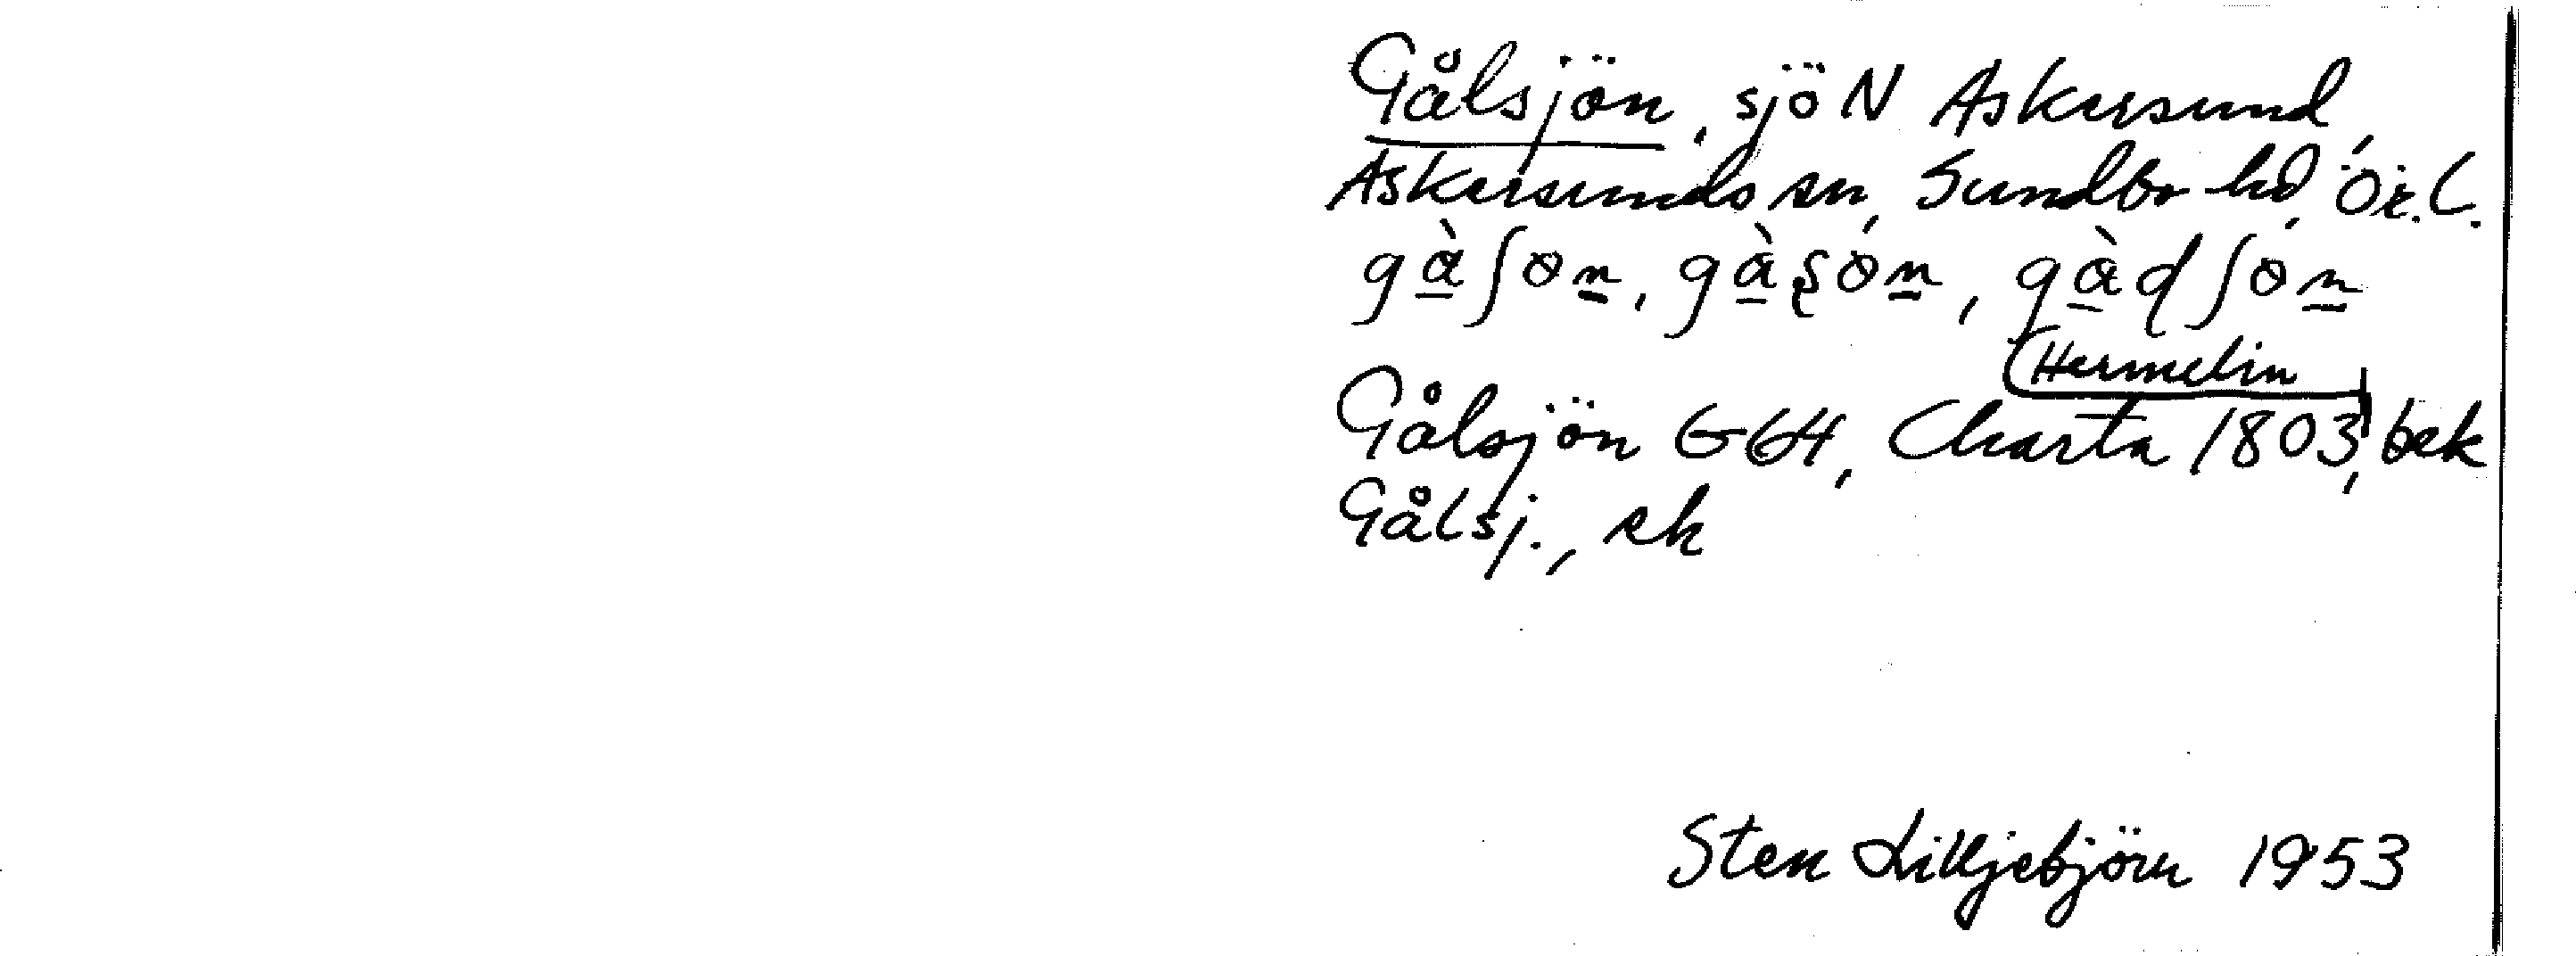 Gålsjön, sjö N Askersund,
Askersunds sn, Sundbo hd, Ör. l.
gàʃɵn, gàʂɵn, gàɖʃɵn
Hermelin
Gålsjön GGH, Charta 1803, bek
Gålsj., ek
Sten Lilljebjörn 1953